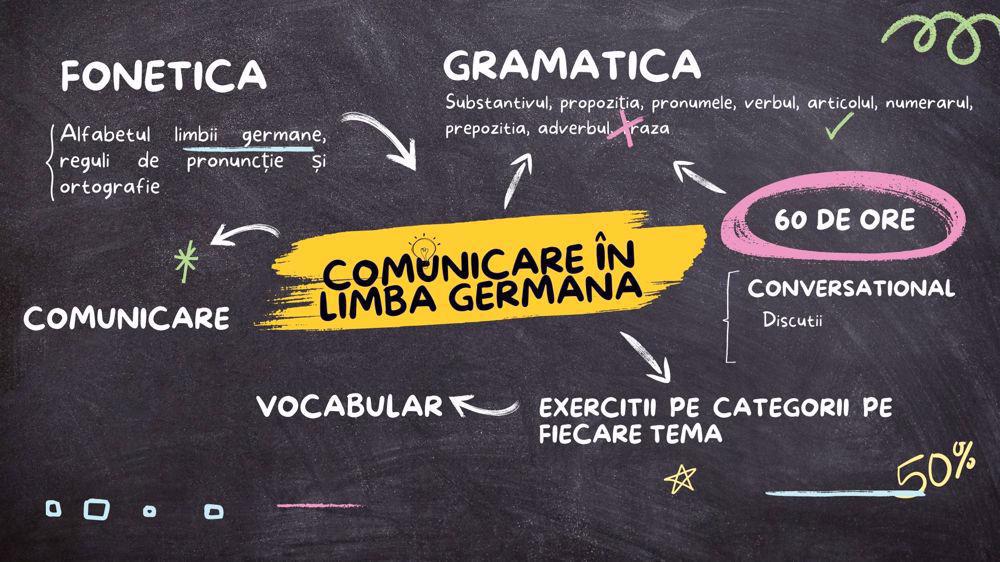 FONETICA
Alfabetul limbii germane,
reguli de pronuncție și
ortografie
GRAMATICA
Substantivul, propoziția, pronumele, verbul, articolul, numerarul,
prepozitia, adverbul,
60 DE ORE
CONVERSATIONAL
Discutii
COMUNICARE ÎN
LIMBA GERMANA
COMUNICARE
VOCABULAR
EXERCITII PE CATEGORII PE
FIECARE TEMA
50%